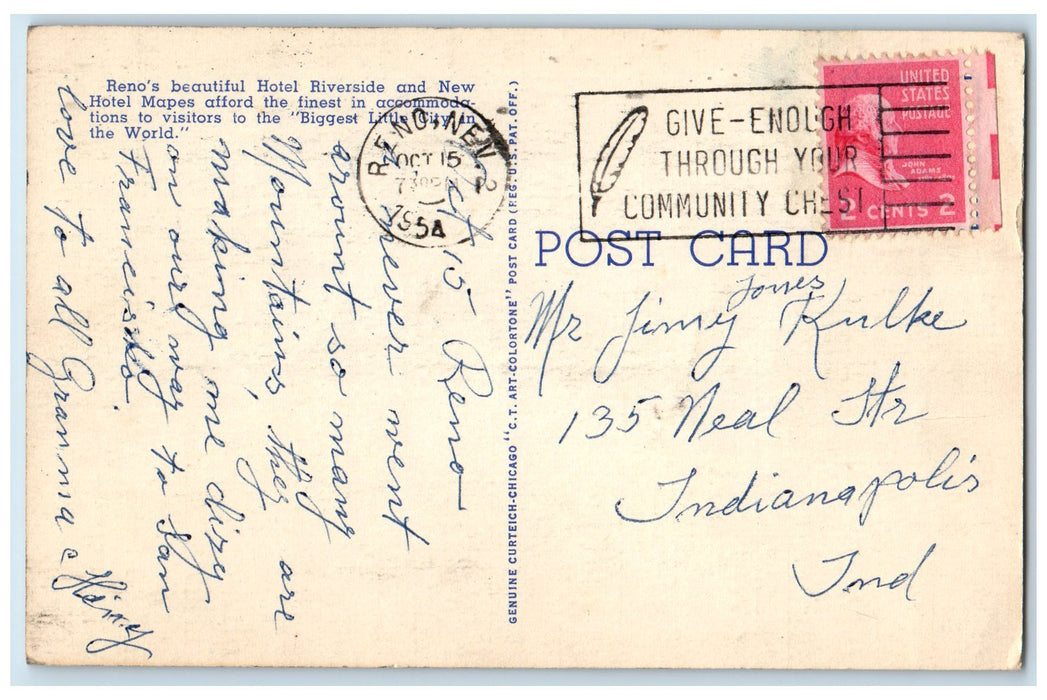 Reno's beautiful Hotel Riverside and New
Hotel Mapes afford the finest in accommoda-
tions to visitors to the "Biggest Little City in
the World."
Oct 15 Reno
I never went
arount so many
Mountains, they are
making me dizy
on our way to San
Francisko.
love to all Granma &
GENUINE CURTEICH-CHICAGO "C.T. ART-COLORTONE" POST CARD (REG. U.S. PAT. OFF.)
RENO, NEV.
2
OCT 15
730 PM
1954
GIVE-ENOUGH
THROUGH YOUR
COMMUNITY CHEST
UNITED
STATES
POSTAGE
JOHN
ADAMS
2 CENTS 2
POST CARD
Jones
Mr Jimy Kulke
135 Neal Str
Indianapolis
Ind